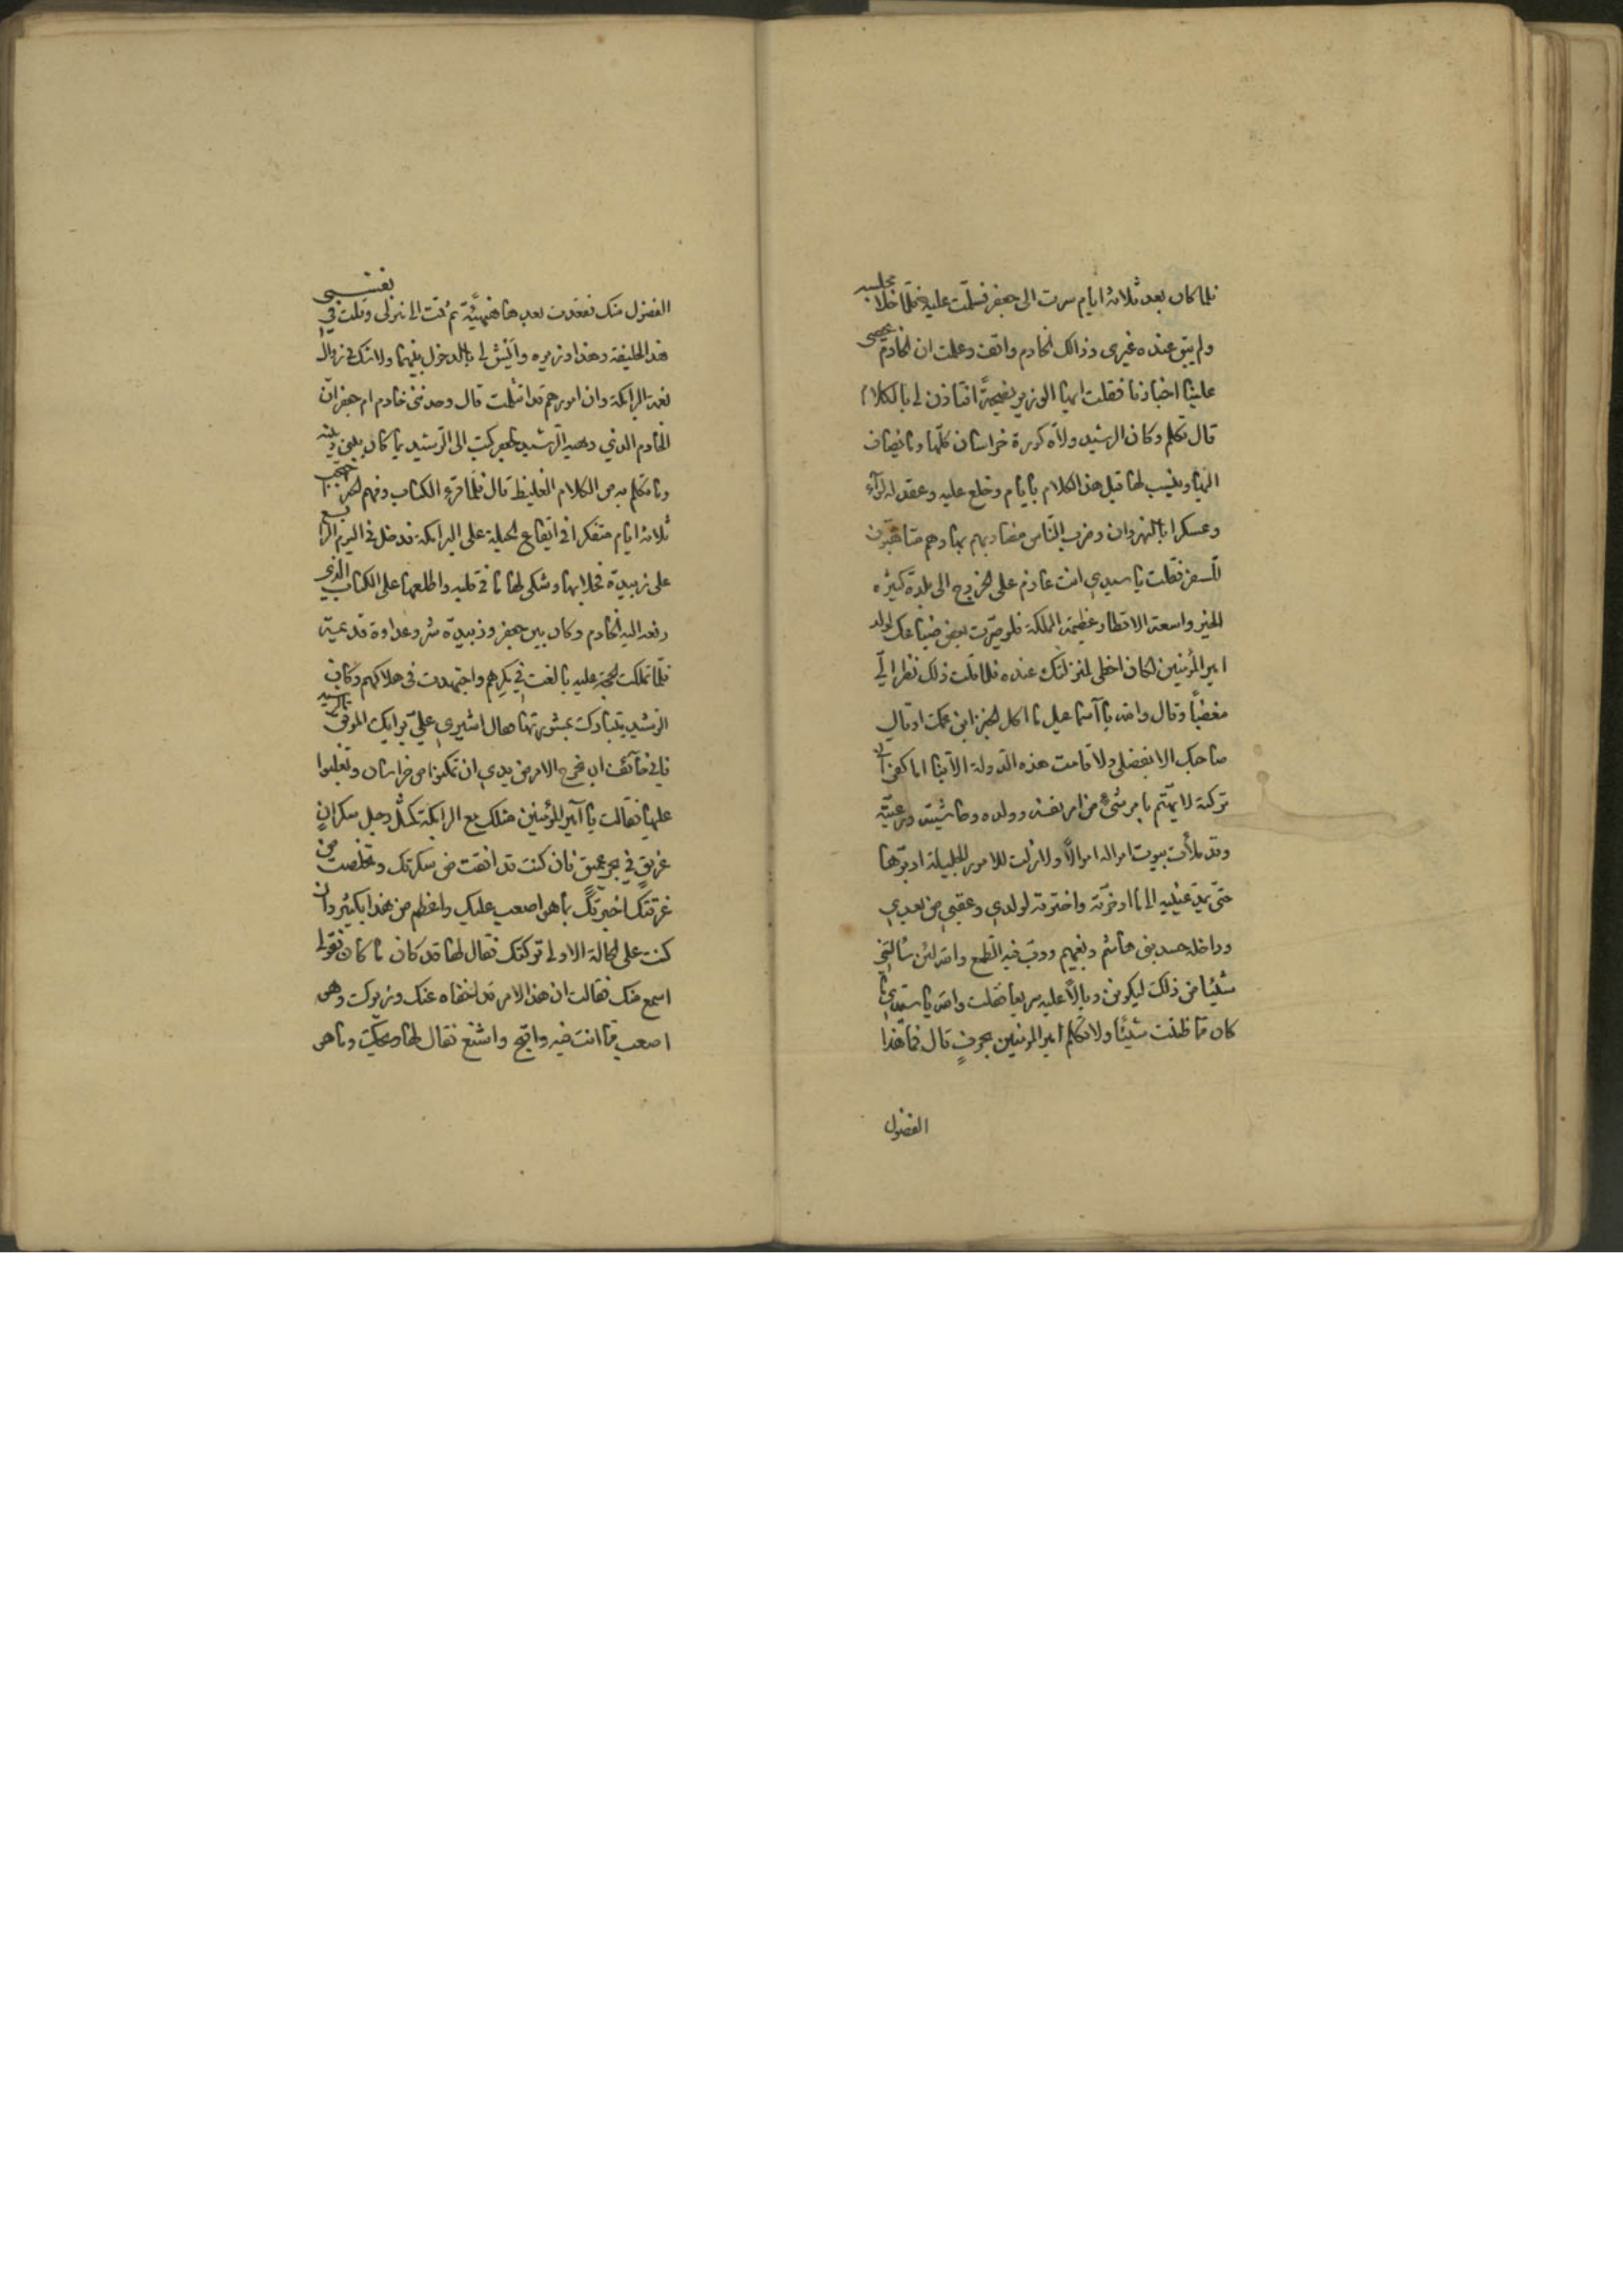 فلما كان بعد ثلاثة ايام سرت الى جعفر فسلمت عليه فلما خلا مجلسه
ولم يبق عنده غيرى وذالك الخادم واقف وعلمت ان الخادم يحصى
علينا اخبارنا فقلت ايها الوزير نصيحةً افتاذن لى بالكلام
قال تكلم وكان الرشيد ولاه كورة خراسان كلّها وما يضاف
اليها وينسب لها قبل هذا الكلام بايام وخلع عليه وعقد له لوآء
وعسكرا بالنهروان وضرب الناس مضاربهم بها وهم متاهّبون
للسفر فقلت يا سيدي انت عازم على الخروج الى بلدة كثيرة
الخير واسعة الاقطار عظيمة المملكة فلو صيّرت بعض ضياعك لولد
امير المؤمنين لكان احظى لمنزلتك عنده فلما قلت ذلك نظر الىّ
مغضباً وقال والله يا آسماعيل ما اكل الخبز ابن عمك او قال
صاحبك الا بفضلى ولا قامت هذه الدولة الا بنا اما كفى ان
تركته لا يهتم بامر شىء من امر نفسه وولده وحاشيته ورعيته
وقد ملأت بيوت امواله اموالاً ولا زلت للامور الجليلة ادبرها
حتى يمد عينيه الى ما ادخرته واخترته لولدي وعقبي من بعدي
وداخله حسد بنى هاشم وبغيهم ودبّ فيه الطمع والله لئن سألنى
شيئا من ذلك ليكونن وبالاً عليه سريعا فقلت والله يا سيدي ما
كان مما ظننت شيئا ولا تكلم امير المؤمنين بحرفٍ قال فما هذا
الفضول
الفضول منك فقعدت بعدها هنيهة ثم قمت الى منزلى وقلت في نفسي
هذا الخليفة وهذا وزيره وايش لى بالدخول بينهما ولا شك فى زوال
نعمة البرامكة وان امورهم قد اثلمت قال وحدثنى خادم ام جعفر ان
الخادم الذي وهبه الرشيد لجعفر كتب الى الرشيد بما كان بينى وبينه
وما تكلم به من الكلام الغليظ قال فلما قرء الكتاب وفهم الخبر احتجب
ثلاثة ايام متفكرا فى ايقاع الحيلة على البرامكة فدخل فى اليوم الرابع
على زبيدة فخلا بها وشكى لها ما فى قلبه واطلعها على الكتاب الذي
رفعه اليه الخادم وكان بين جعفر وزبيدة شر وعداوة قديمة
فلما تملكت الحجة عليه بالغت في مكرهم واجتهدت فى هلاكهم وكان
الرشيد يتبارك بمشورتها فقال اشيري علىّ برايك الموفق الرشيد
فانى خآئف ان يخرج الامر من يدي ان تمكنوا من خراسان وتغلبوا
عليها فقالت يا آمير المؤمنين مثلك مع البرامكة كمثل رجل سكرانٍ
غريقٍ في بحر عميق فان كنت قد افقت من سكرتك وتخلصت من
غرقتك اخبرتك بما هو اصعب عليك واعظم من هذا بكثير وان
كنت على الحالة الاولى تركتك فقال لها قد كان ما كان فقولى
اسمع منك فقالت ان هذا الامر قد اخفاه عنك وزيرك وهو
اصعب مما انت فيه واقبح واشنع فقال لها ويحك وما هو